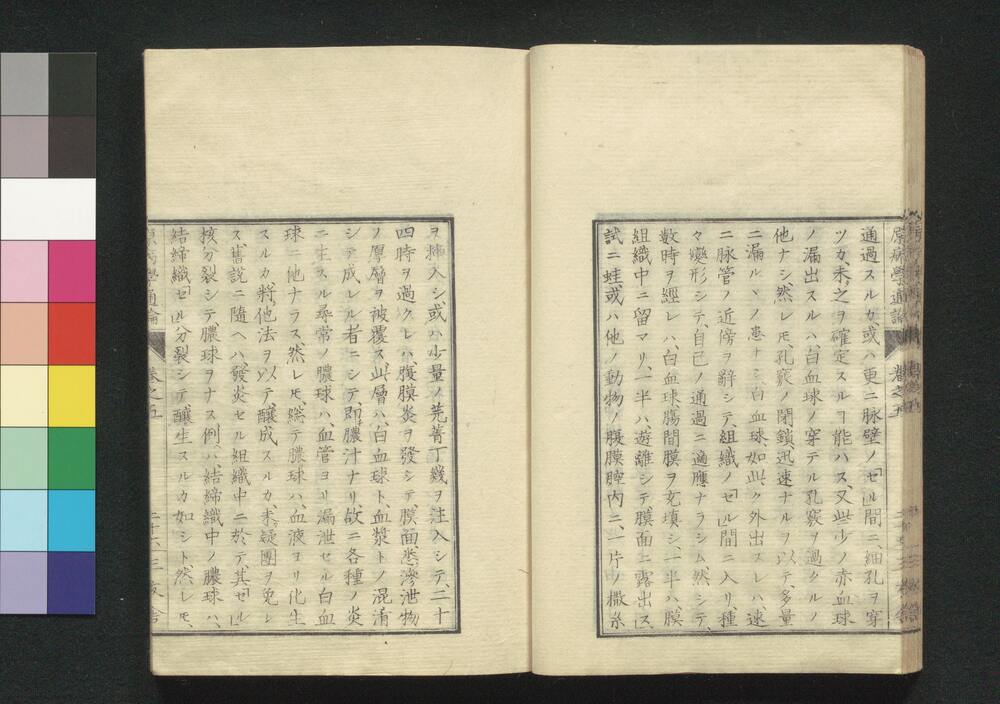 原病學通論 巻之五
通過スルカ或ハ更ニ脉壁ノ「セル」間ニ細孔ヲ穿
ツカ、未タ之ヲ確定スルヿ能ハス、又些少ノ赤血球
ノ漏出スルハ、白血球ノ穿テル孔竅ヲ過クルノ
他ナシ、然レ𪜈、孔竅ノ閉鎖迅速ナルヲ以テ、多量
ニ漏ルヽノ患ナシ、白血球、如此ク外出スレハ、速
ニ脉管ノ近傍ヲ辭シテ、組織ノ「セル」間ニ入リ、種
々變形シテ、自己ノ通過ニ適應ナラシム、然シテ、
數時ヲ經レハ、白血球腸間膜ヲ充填シ、一半ハ、膜
組織中ニ留マリ、一半ハ、遊離シテ膜面ニ露出ス、
試ニ蛙、或ハ他ノ動物ノ腹膜腔内ニ、一片ノ撒糸
ヲ挿入シ、或ハ少量ノ芫菁丁幾ヲ注入シテ、二十
四時ヲ過クレハ、腹膜炎ヲ發シテ、膜面悉ク滲泄物
ノ厚層ヲ被覆ス、此層ハ、白血球ト、血漿トノ混淆
シテ成レル者ニシテ、即膿汁ナリ、故ニ各種ノ炎
ニ生スル尋常ノ膿球ハ、血管ヨリ漏泄セル白血
球ニ他ナラス、然レ𪜈、總テ膿球ハ、血液ヨリ化生
スルカ、將他法ヲ以テ釀成スルカ、未タ疑團ヲ免レ
ス、舊説ニ隨ヘハ、發炎セル組織中ニ於テ、其「セル」
核分裂シテ膿球ヲナス、例ハ、結締織中ノ膿球ハ、
結締織「セル」分裂シテ釀生スルカ如シト、然レ𪜈、
原病學通論 巻之五